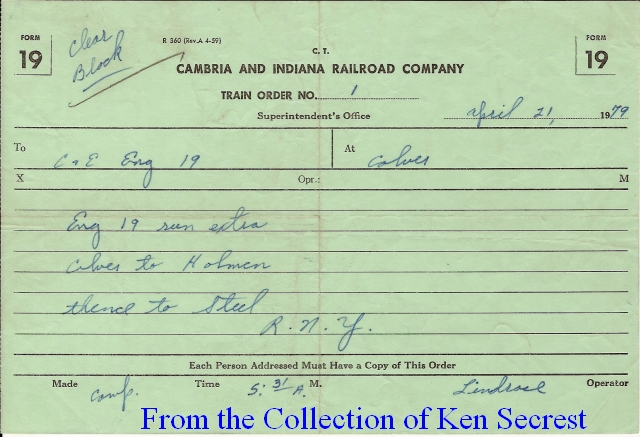 FORM 19
Clear Block
R 360 (Rev.A 4-59)
C. T.
FORM 19
CAMBRIA AND INDIANA RAILROAD COMPANY
TRAIN ORDER NO. 1
Superintendent's Office
April 21, 1979
To C&E Eng 19
At Colver
X
Opr.:
M
Eng 19 run extra
Colver to Holmen
thence to Steel
R. N. Y.
Each Person Addressed Must Have a Copy of This Order
Made Comp. Time 5:31 A. M. Operator
From the Collection of Ken Secrest